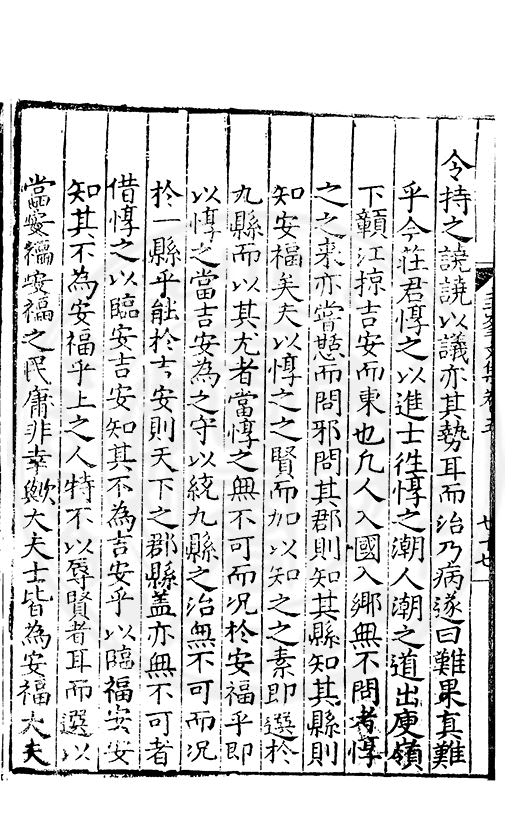 令持之譊譊以議亦其勢耳而治乃病遂曰難果真難
乎今莊君惇之以進士徃惇之潮人潮之道出庾嶺
下贑江掠吉安而東也凡人入國入鄉無不問者惇
之之来亦嘗憇而問邪問其郡則知其縣知其縣則
知安福矣夫以惇之之賢而加以知之之素即選於
九縣而以其尤者當惇之無不可而况於安福乎即
以惇之當吉安為之守以統九縣之治無不可而况
於一縣乎能於吉安則天下之郡縣蓋亦無不可者
借惇之以臨安吉安知其不為吉安乎以臨福安安
知其不為安福乎上之人特不以辱賢者耳而選以
當安福安福之民庸非幸歟大夫士皆為安福大夫
文集卷五
廿十七